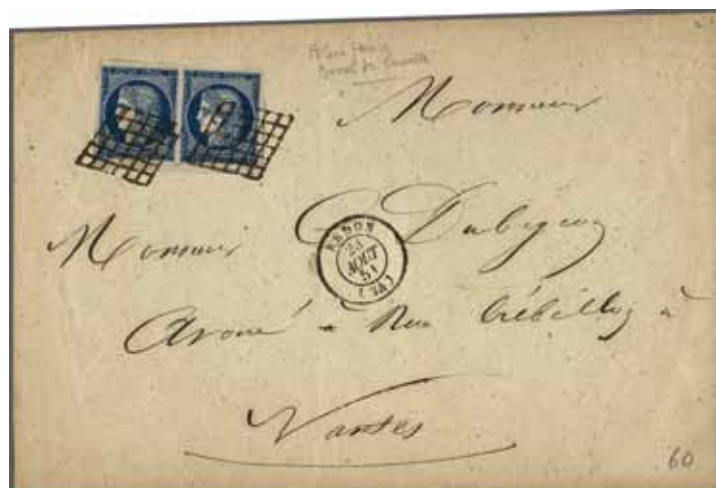 Monsieur
Monsieur E Dubigeon
REDON
23
AOUT
51
(34)
Avoué - Rue Crébillon à
Nantes
60